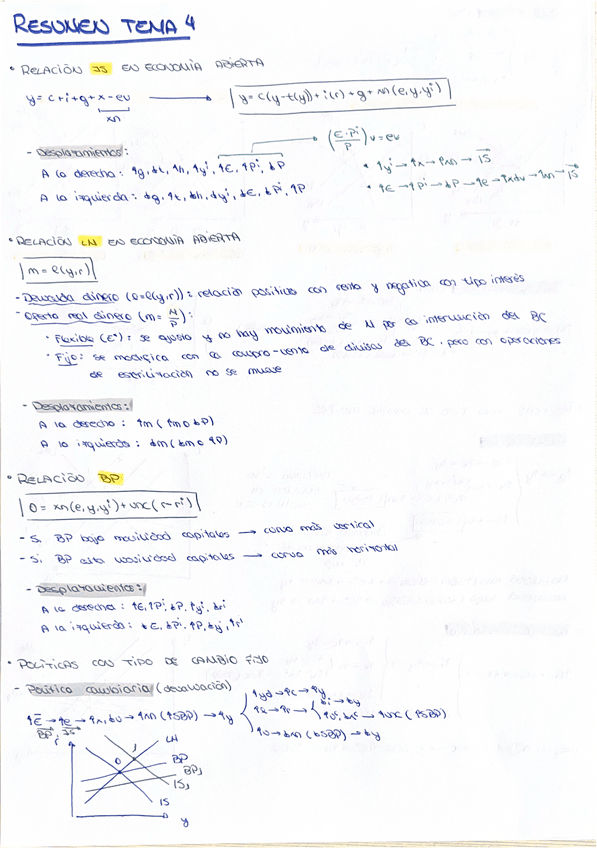 RESUMEN TEMA 4
• RELACIÓN IS EN ECONOMÍA ABIERTA
y = c+i+g+x-ev → y = c(y-t(y))+i(r)+g+xn(e,y,yⁱ)
xn
(E·Pⁱ/P) v = ev
- Desplazamientos:
A la derecha: ↑g, ↓t, ↑h, ↑yⁱ, ↑E, ↑Pⁱ, ↓P
• ↑yⁱ → ↑x → ↑xn → IS
A la izquierda: ↓g, ↑t, ↓h, ↓yⁱ, ↓E, ↓Pⁱ, ↑P
• ↑E → ↑Pⁱ → ↓P → ↑e → ↑x↓v → ↑xn → IS
• RELACIÓN LM EN ECONOMÍA ABIERTA
m = l(y,r)
- Demanda dinero (l=l(y,r)): relación positiva con renta y negativa con tipo interés
- Oferta real dinero (m = M/P):
• Flexible (E*): se ajusta y no hay movimiento de M por la intervención del BC
• Fijo: se modifica con la compra-venta de divisas del BC. pero con operaciones
de esterilización no se mueve
- Desplazamientos:
A la derecha: ↑m (↑M o ↓P)
A la izquierda: ↓m (↓M o ↑P)
• RELACIÓN BP
0 = xn(e,y,yⁱ)+vnc(r-rⁱ)
- Si BP baja movilidad capitales → curva más vertical
- Si BP alta movilidad capitales → curva más horizontal
- Desplazamientos:
A la derecha: ↑E, ↑Pⁱ, ↓P, ↑yⁱ, ↓rⁱ
A la izquierda: ↓E, ↓Pⁱ, ↑P, ↓yⁱ, ↑rⁱ
• POLÍTICAS CON TIPO DE CAMBIO FIJO
- Política cambiaria (devaluación)
↑E → ↑e → ↑x, ↓v → ↑xn (↑SBP) → ↑y
BP IS
↑yd → ↑c → ↑y
↑l → ↑r → ↓i → ↓y
→ ↑vnc (↑SBP)
↑v → ↓xn (↓SBP) → ↓y
r
LM
BP
BP₁
IS₁
IS
0
1
y